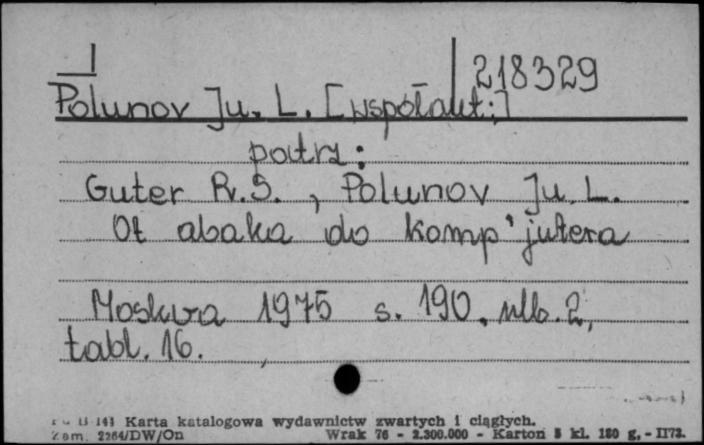 1
218329
Polunov Ju. L. [współaut:]
patrz:
Guter R.S., Polunov Ju. L.
Ot abaka do komp'jutera
Moskva 1975 s. 190, nlb. 2,
tabl. 16.
Karta katalogowa wydawnictw zwartych i ciągłych.
Zam. 2264/DW/On Wrak 76 - 2.300.000 - Karton 5 kl. 180 g. - II73.